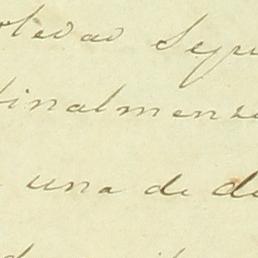 oledad Sepu
finalmente
una de de